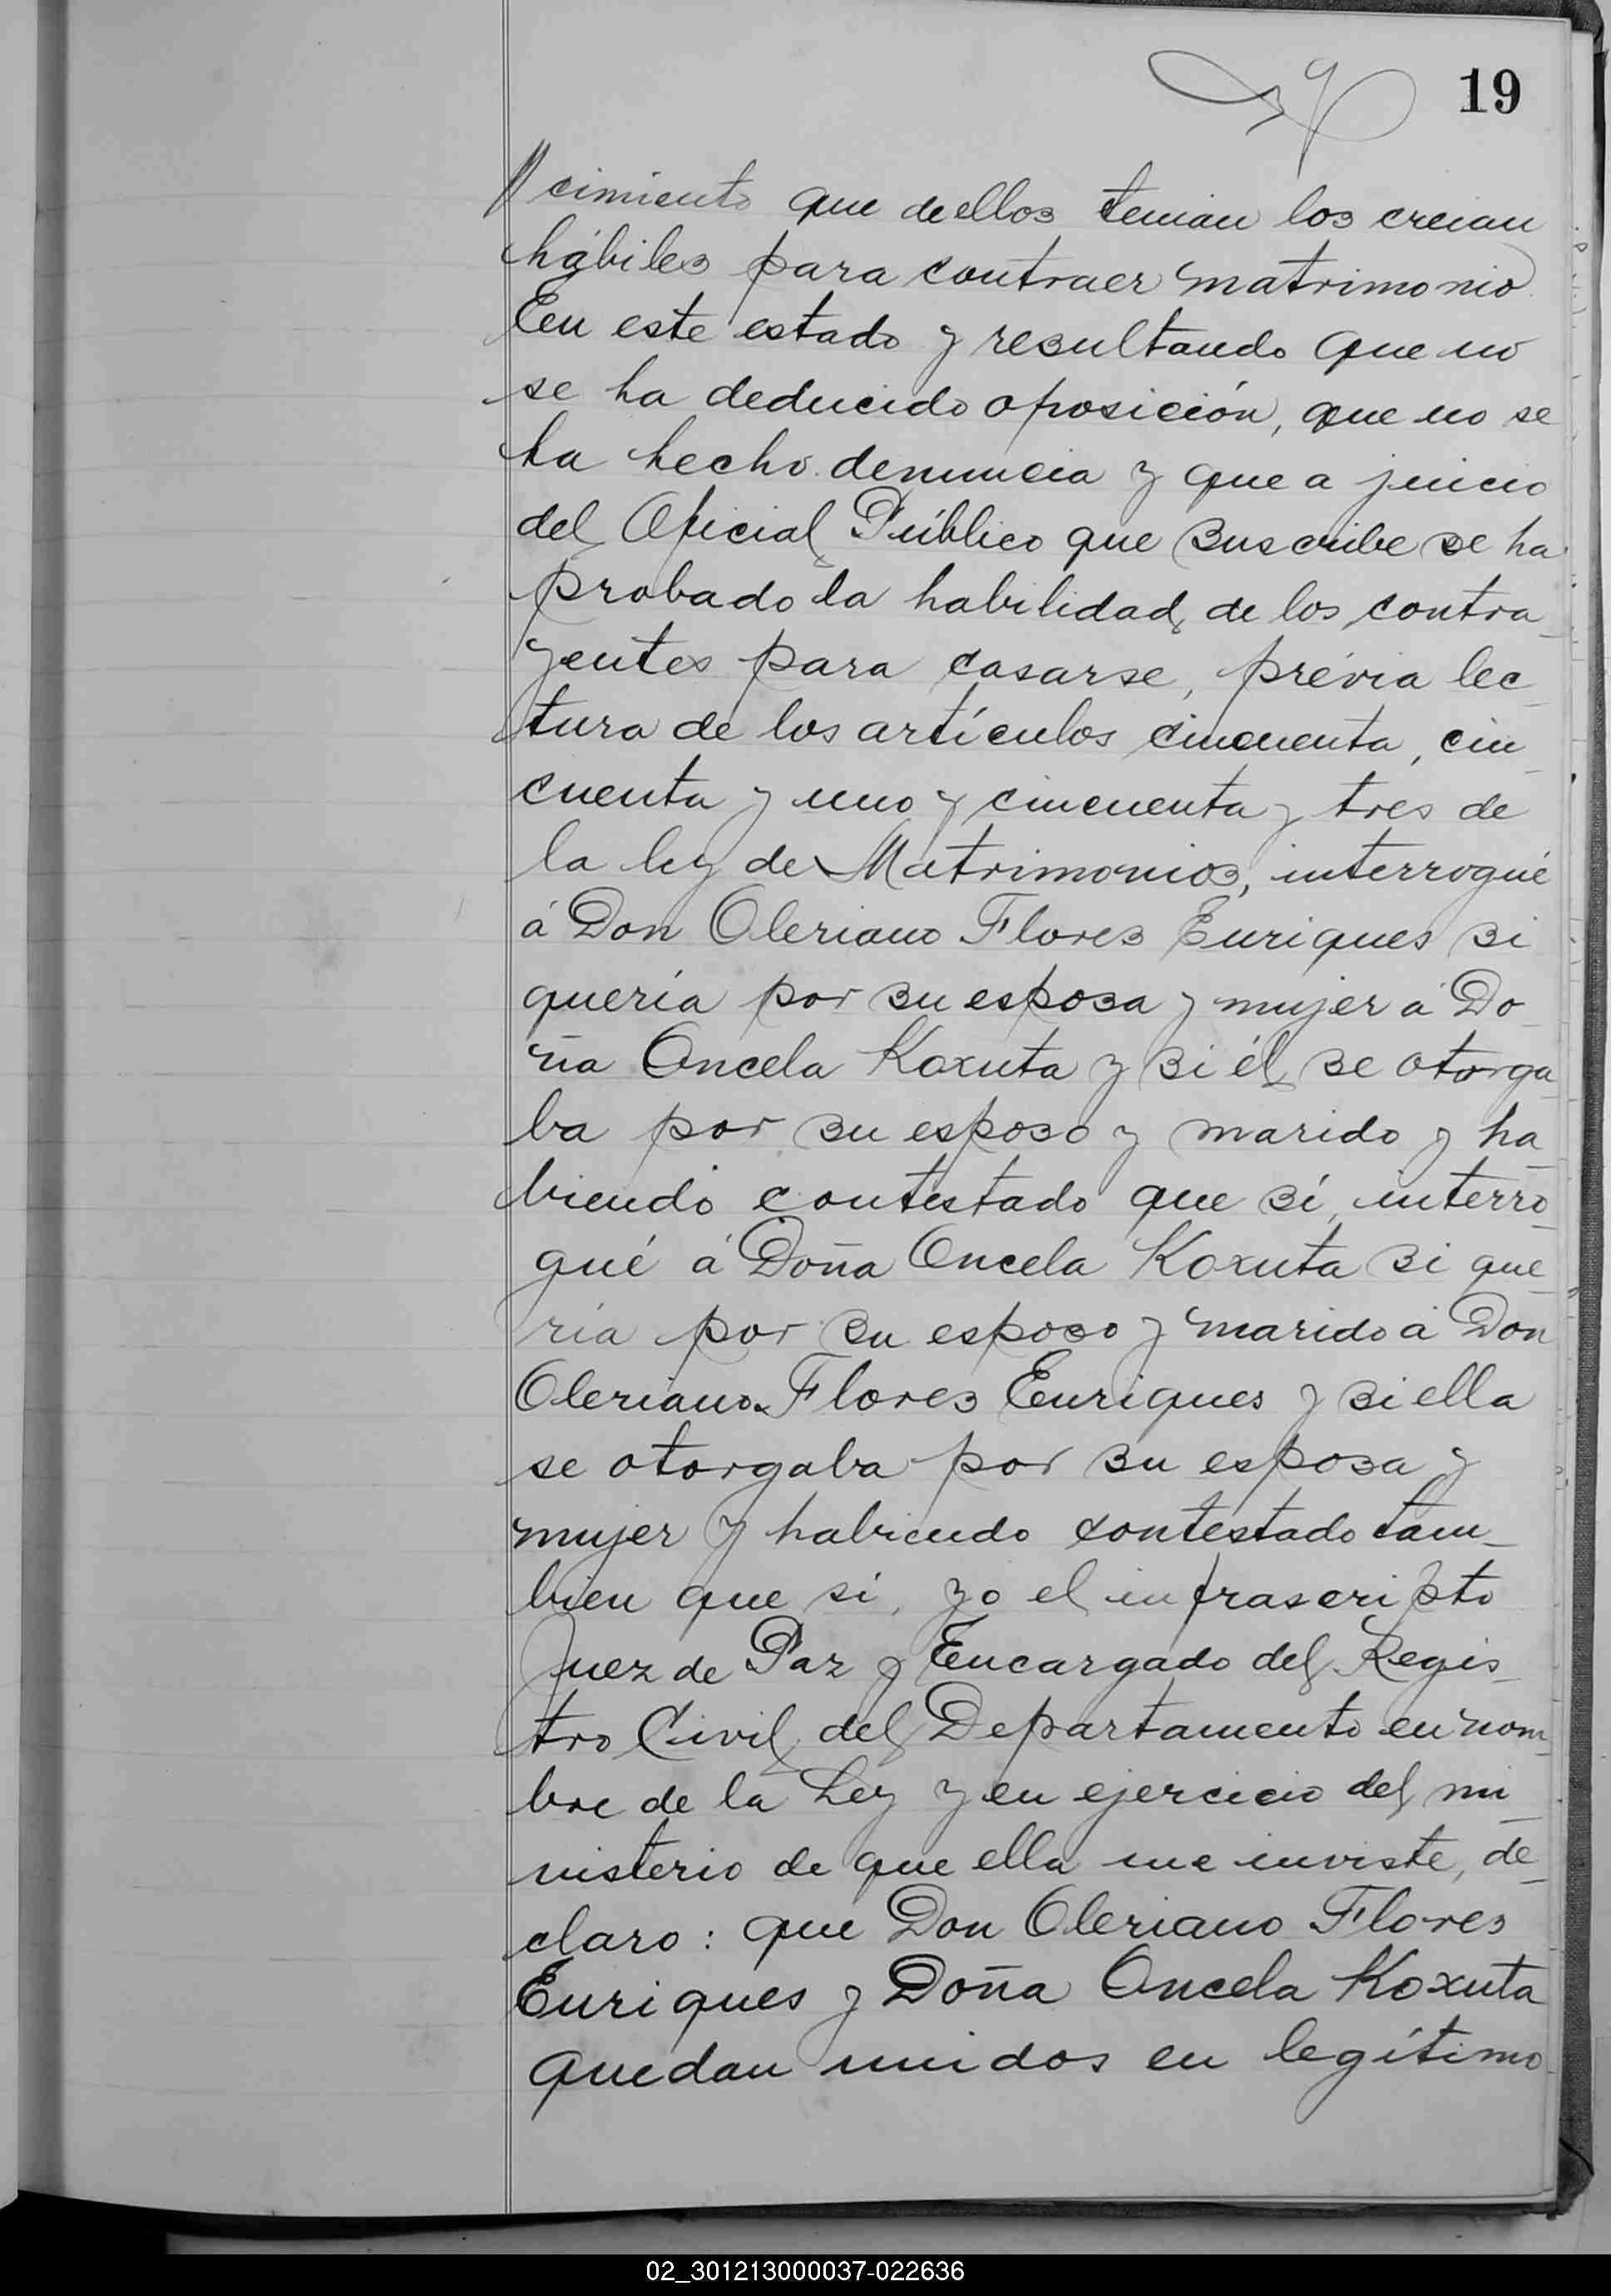 19
cimiento que de ellos tenian los creian
hábiles para contraer matrimonio
En este estado y resultando que no
se ha deducido oposición, que no se
ha hecho denuncia y que a juicio
del Oficial Público que suscribe se ha
probado la habilidad de los contra
yentes para casarse, prévia lec
tura de los artículos cincuenta, cin
cuenta y uno y cincuenta y tres de
la ley de Matrimonios, interrogué
á Don Oleriano Flores Enriques si
quería por su esposa y mujer á Do
ña Oncela Koxuta y si él se otorga
ba por su esposo y marido y ha
biendo contestado que sí, interro
gué á Doña Oncela Koxuta si que
ria por su esposo y marido á Don
Oleriano Flores Enriques y si ella
se otorgaba por su esposa y
mujer y habiendo contestado tam
bien que si, yo el infrascripto
Juez de Paz y Encargado del Regis
tro Civil del Departamento en nom
bre de la Ley y en ejercicio del mi
nisterio de que ella me inviste, de
claro: que Don Oleriano Flores
Enriques y Doña Oncela Koxuta
quedan unidos en legítimo
02_301213000037-022636